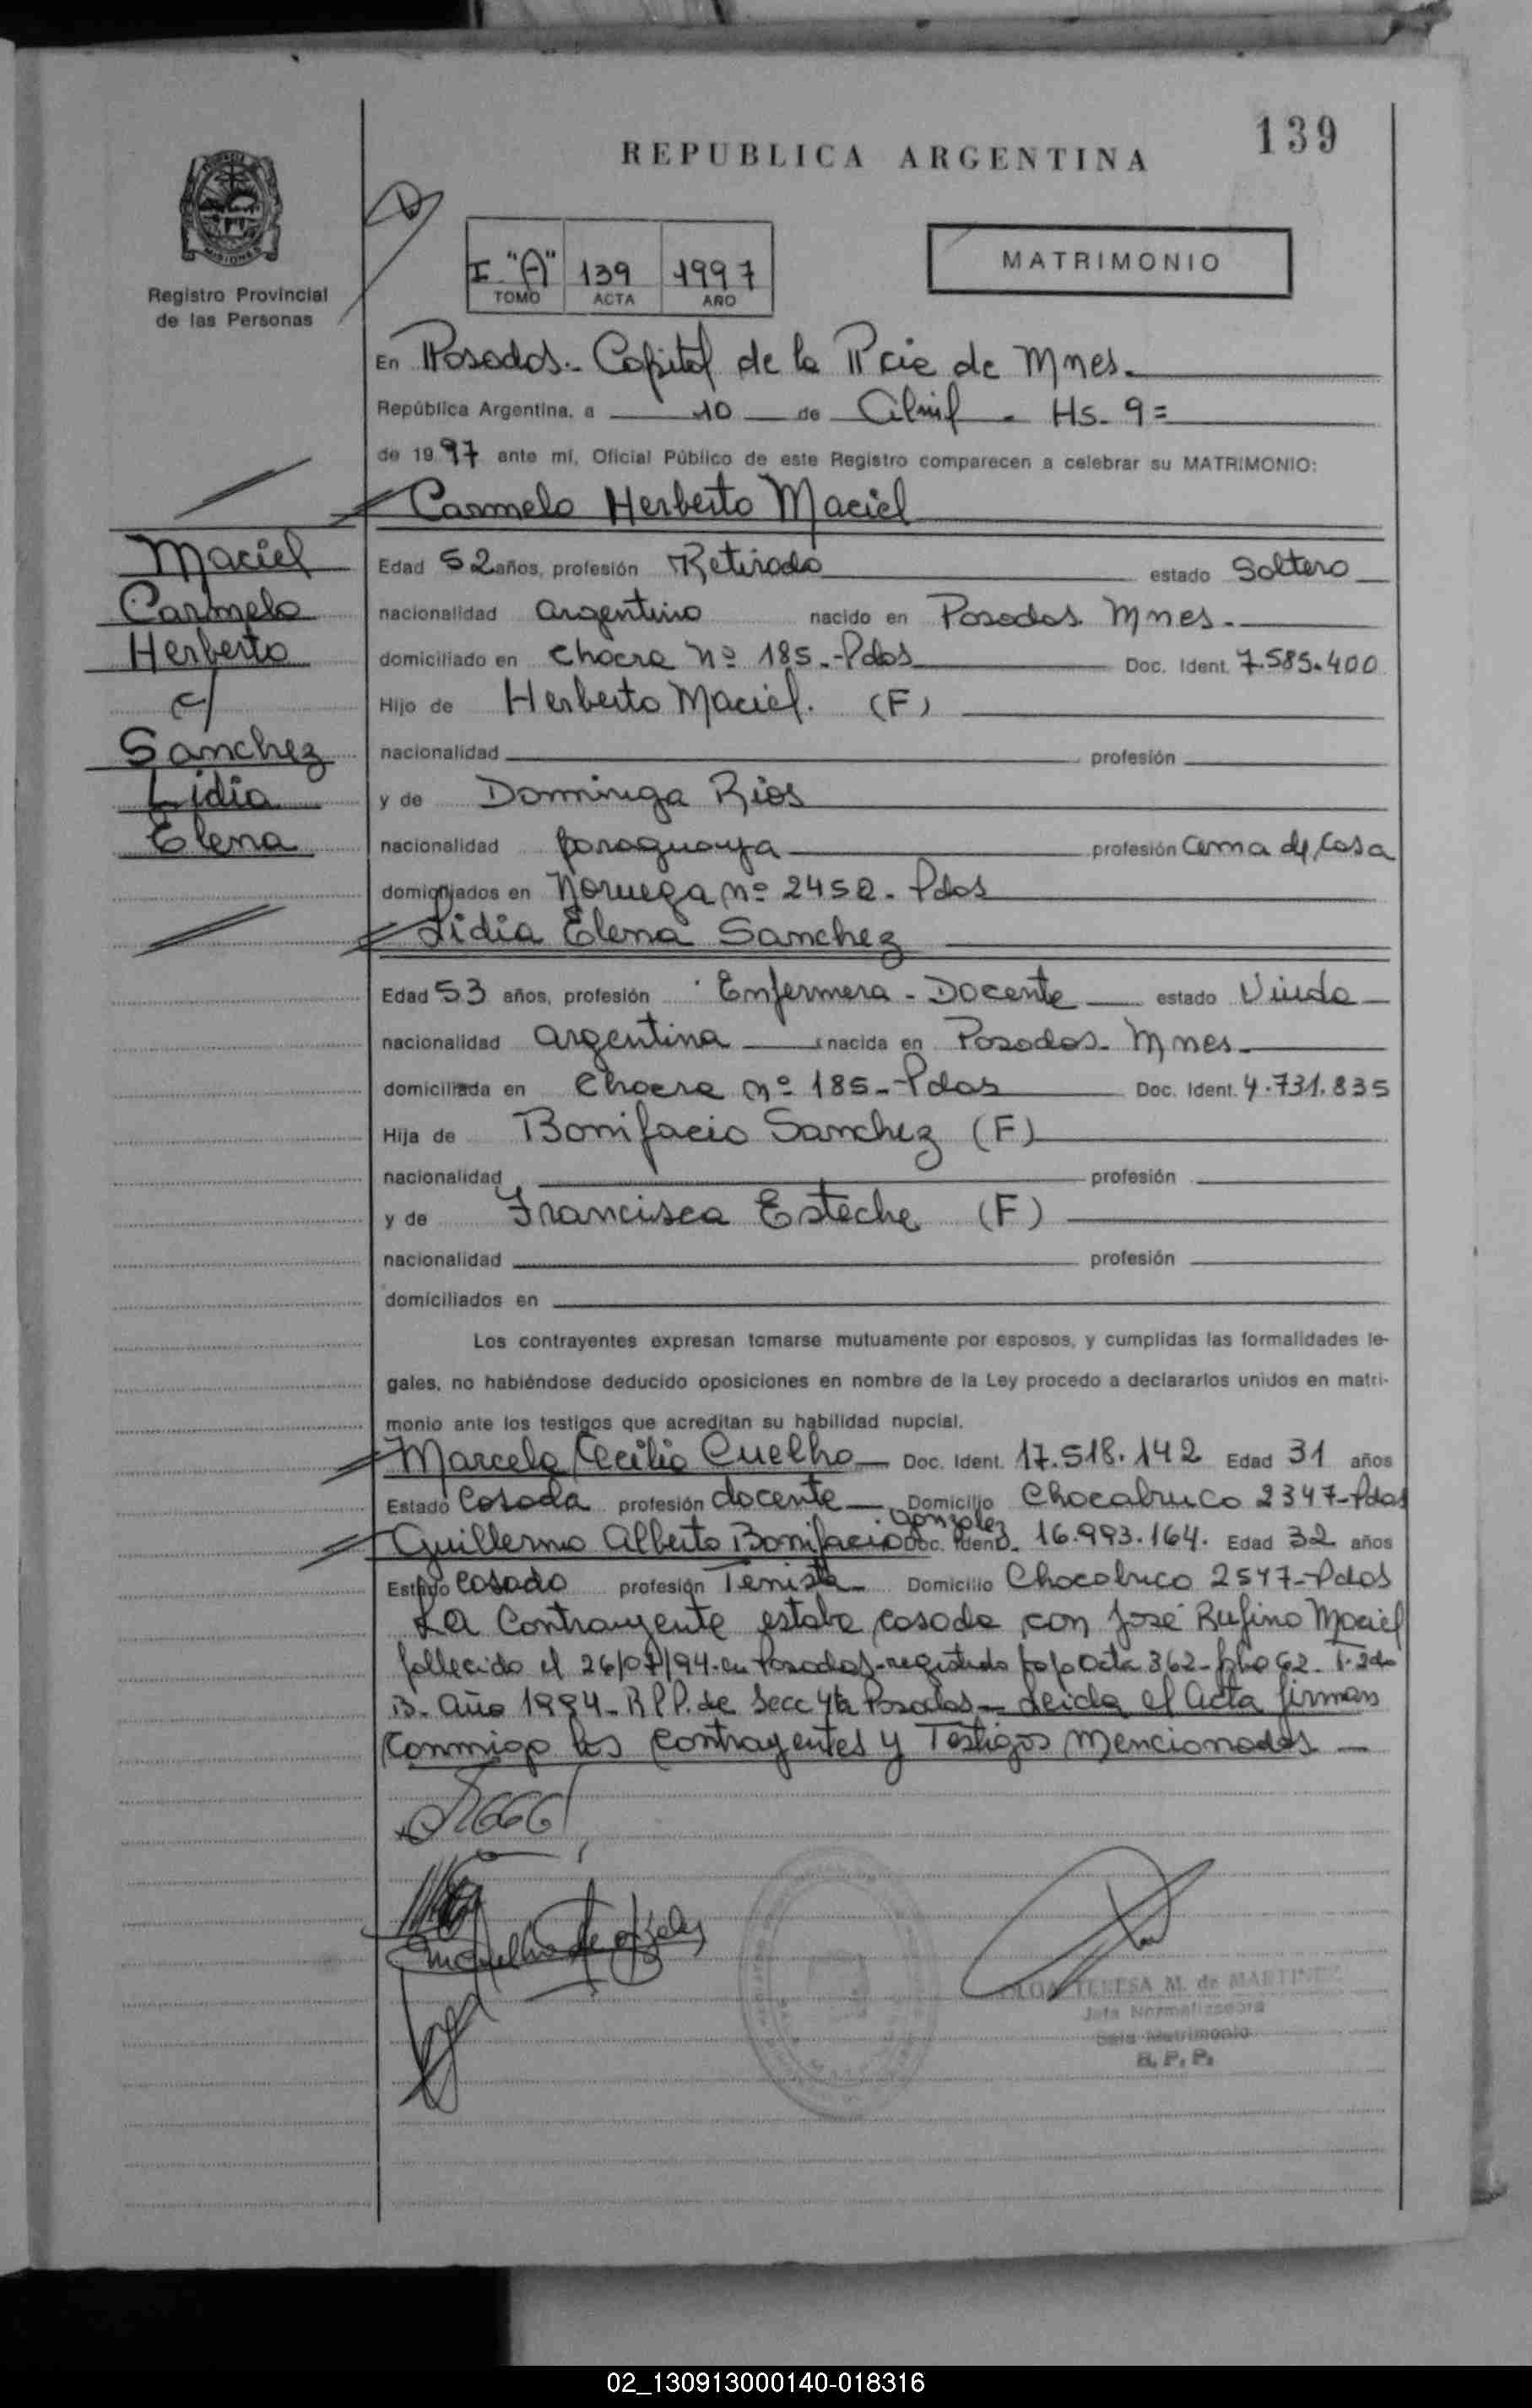 139
REPUBLICA ARGENTINA
MISIONES
Registro Provincial
de las Personas
I "A" 139 1997
TOMO ACTA AÑO
MATRIMONIO
En Posadas.- Capital de la Pcia de Mnes.
República Argentina, a 10 de Abril - Hs. 9=
de 1997 ante mí, Oficial Público de este Registro comparecen a celebrar su MATRIMONIO:
Carmelo Herberto Maciel
Maciel
Carmelo
Herberto
c/
Sanchez
Lidia
Elena
Edad 52 años, profesión Retirado estado Soltero
nacionalidad argentino nacido en Posadas Mnes.
domiciliado en Chacra Nº 185.-Pdas Doc. Ident. 7.585.400
Hijo de Herberto Maciel. (F)
nacionalidad profesión
y de Dominga Rios
nacionalidad paraguaya profesión ama de casa
domiciliados en Noruega nº 2450.- Pdas
Lidia Elena Sanchez
Edad 53 años, profesión Enfermera - Docente estado Viuda
nacionalidad argentina nacida en Posadas- Mnes.
domiciliada en Chacra nº 185-Pdas Doc. Ident. 4.731.835
Hija de Bonifacio Sanchez (F)
nacionalidad profesión
y de Francisca Esteche (F)
nacionalidad profesión
domiciliados en
Los contrayentes expresan tomarse mutuamente por esposos, y cumplidas las formalidades le-
gales, no habiéndose deducido oposiciones en nombre de la Ley procedo a declararlos unidos en matri-
monio ante los testigos que acreditan su habilidad nupcial.
Marcela Cecilia Cuelho Doc. Ident. 17.518.142 Edad 31 años
Estado Casada profesión docente Domicilio Chacabuco 2347-Pdas
Gonzalez
Guillermo Alberto Bonifacio Doc. Ident. 16.993.164. Edad 32 años
Estado Casado profesión Tenista Domicilio Chacabuco 2547-Pdas
La Contrayente estaba casada con José Rufino Maciel
fallecido el 26/07/94-en Posadas-registrado bajo Acta 362- folio 62- T-2do
B- Año 1994- R.P.P. de Secc 4ta Posadas- Leida el Acta firman
Conmigo los contrayentes y Testigos mencionados
TERESA M. de MARTINEZ
Jefa Normalizadora
Sala Matrimonio
R. P. P.
02_130913000140-018316